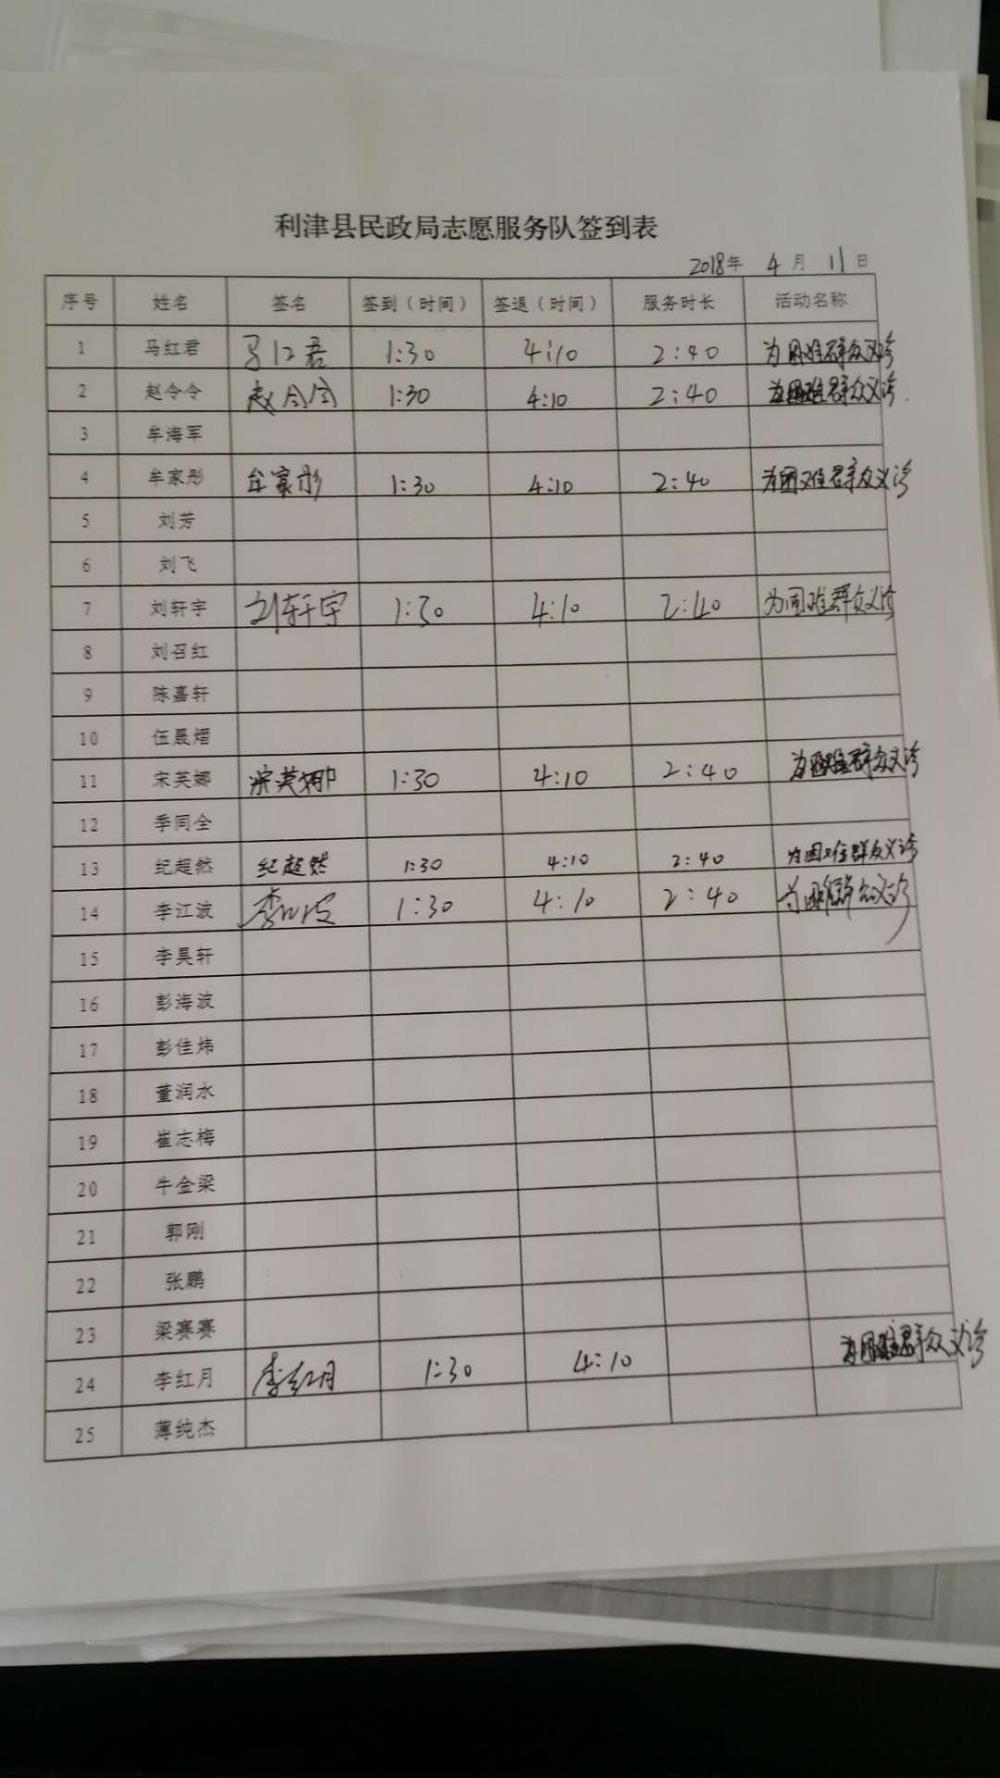 利津县民政局志愿服务队签到表
2018年 4月 11日
序号 姓名 签名 签到（时间） 签退（时间） 服务时长 活动名称
1 马红君 马红君 1:30 4:10 2:40 为困难群众义诊
2 赵令令 赵令令 1:30 4:10 2:40 为困难群众义诊
3 牟海军
4 牟家彤 牟家彤 1:30 4:10 2:40 为困难群众义诊
5 刘芳
6 刘飞
7 刘轩宇 刘轩宇 1:30 4:10 2:40 为困难群众义诊
8 刘召红
9 陈嘉轩
10 伍晟熠
11 宋英娜 宋英娜 1:30 4:10 2:40 为困难群众义诊
12 季同全
13 纪超然 纪超然 1:30 4:10 2:40 为困难群众义诊
14 李江波 李江波 1:30 4:10 2:40 为困难群众义诊
15 李昊轩
16 彭海波
17 彭佳炜
18 董润水
19 崔志梅
20 牛金梁
21 郭刚
22 张鹏
23 梁赛赛
24 李红月 李红月 1:30 4:10 为困难群众义诊
25 薄纯杰